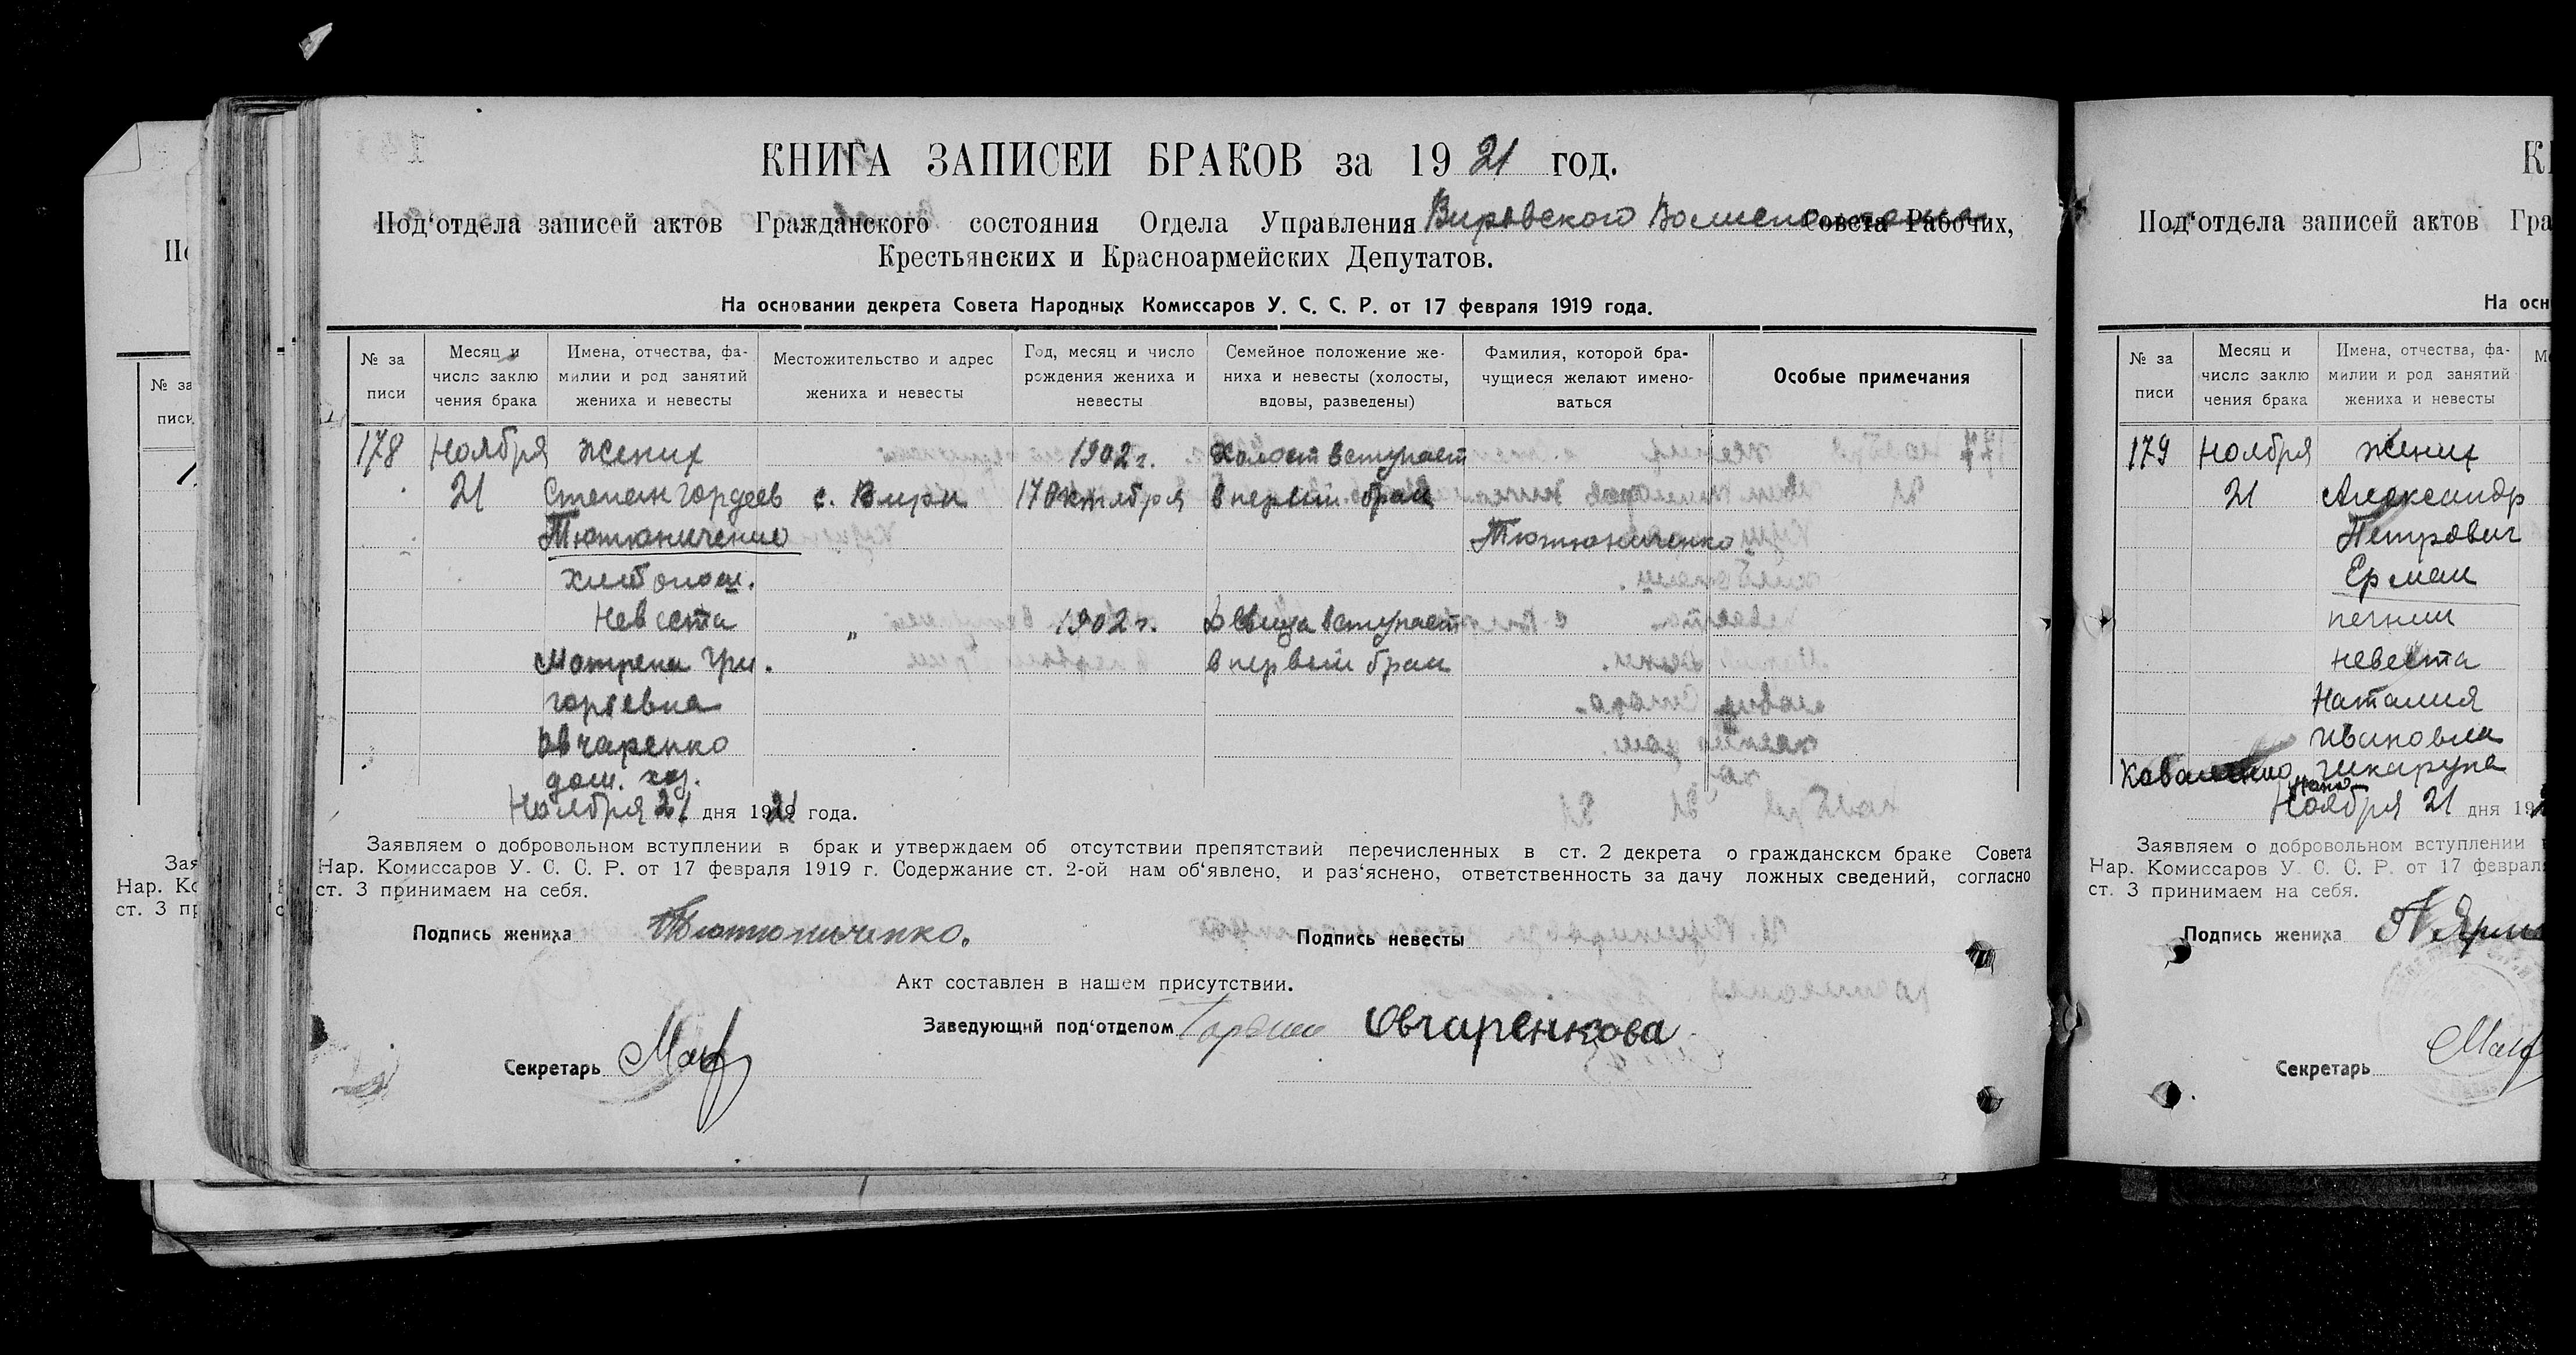 КНИГА ЗАПИСЕЙ БРАКОВ за 1921 год.
Под'отдела записей актов Гражданского состояния Отдела Управления Вировского Волисполкома Совета Рабочих,
Крестьянских и Красноармейских Депутатов.
На основании декрета Совета Народных Комиссаров У. С. С. Р. от 17 февраля 1919 года.
№ за писи
Месяц и число заклю чения брака
Имена, отчества, фа- милии и род занятий жениха и невесты
Местожительство и адрес жениха и невесты
Год, месяц и число рождения жениха и невесты
Семейное положение же- ниха и невесты (холосты, вдовы, разведены)
Фамилия, которой бра- чущиеся желают имено- ваться
Особые примечания
178 Ноября жених 1902 г. Холост вступает
21 Степан Гордеев с. Вири 17 Октября в первый брак
Тютюниченко Тютюниченко
хлебопаш.
Невеста " 1902 г. Девица вступает
Мотрена Гри. в первый брак
горьевна
Овчаренко
дом. хоз.
Ноября 21 дня 1921 года.
Заявляем о добровольном вступлении в брак и утверждаем об отсутствии препятствий перечисленных в ст. 2 декрета о гражданском браке Совета
Нар. Комиссаров У. С. С. Р. от 17 февраля 1919 г. Содержание ст. 2-ой нам об'явлено, и раз'яснено, ответственность за дачу ложных сведений, согласно
ст. 3 принимаем на себя.
Подпись жениха Тютюниченко. Подпись невесты
Акт составлен в нашем присутствии.
Заведующий под'отделом Овчаренкова
Секретарь
Под'отдела записей актов Гра
На осн
№ за писи
Месяц и число заклю чения брака
Имена, отчества, фа- милии и род занятий жениха и невесты
179 Ноября жених
21 Александр
Петрович
Ермак
невеста
Наталия
Ивановна
Ноября 21 дня 19
Заявляем о добровольном вступлении
Нар. Комиссаров У. С. С. Р. от 17 феврал
ст. 3 принимаем на себя.
Подпись жениха
Секретарь
№ за
писи
Зая
Нар. Ко
ст. 3 пр